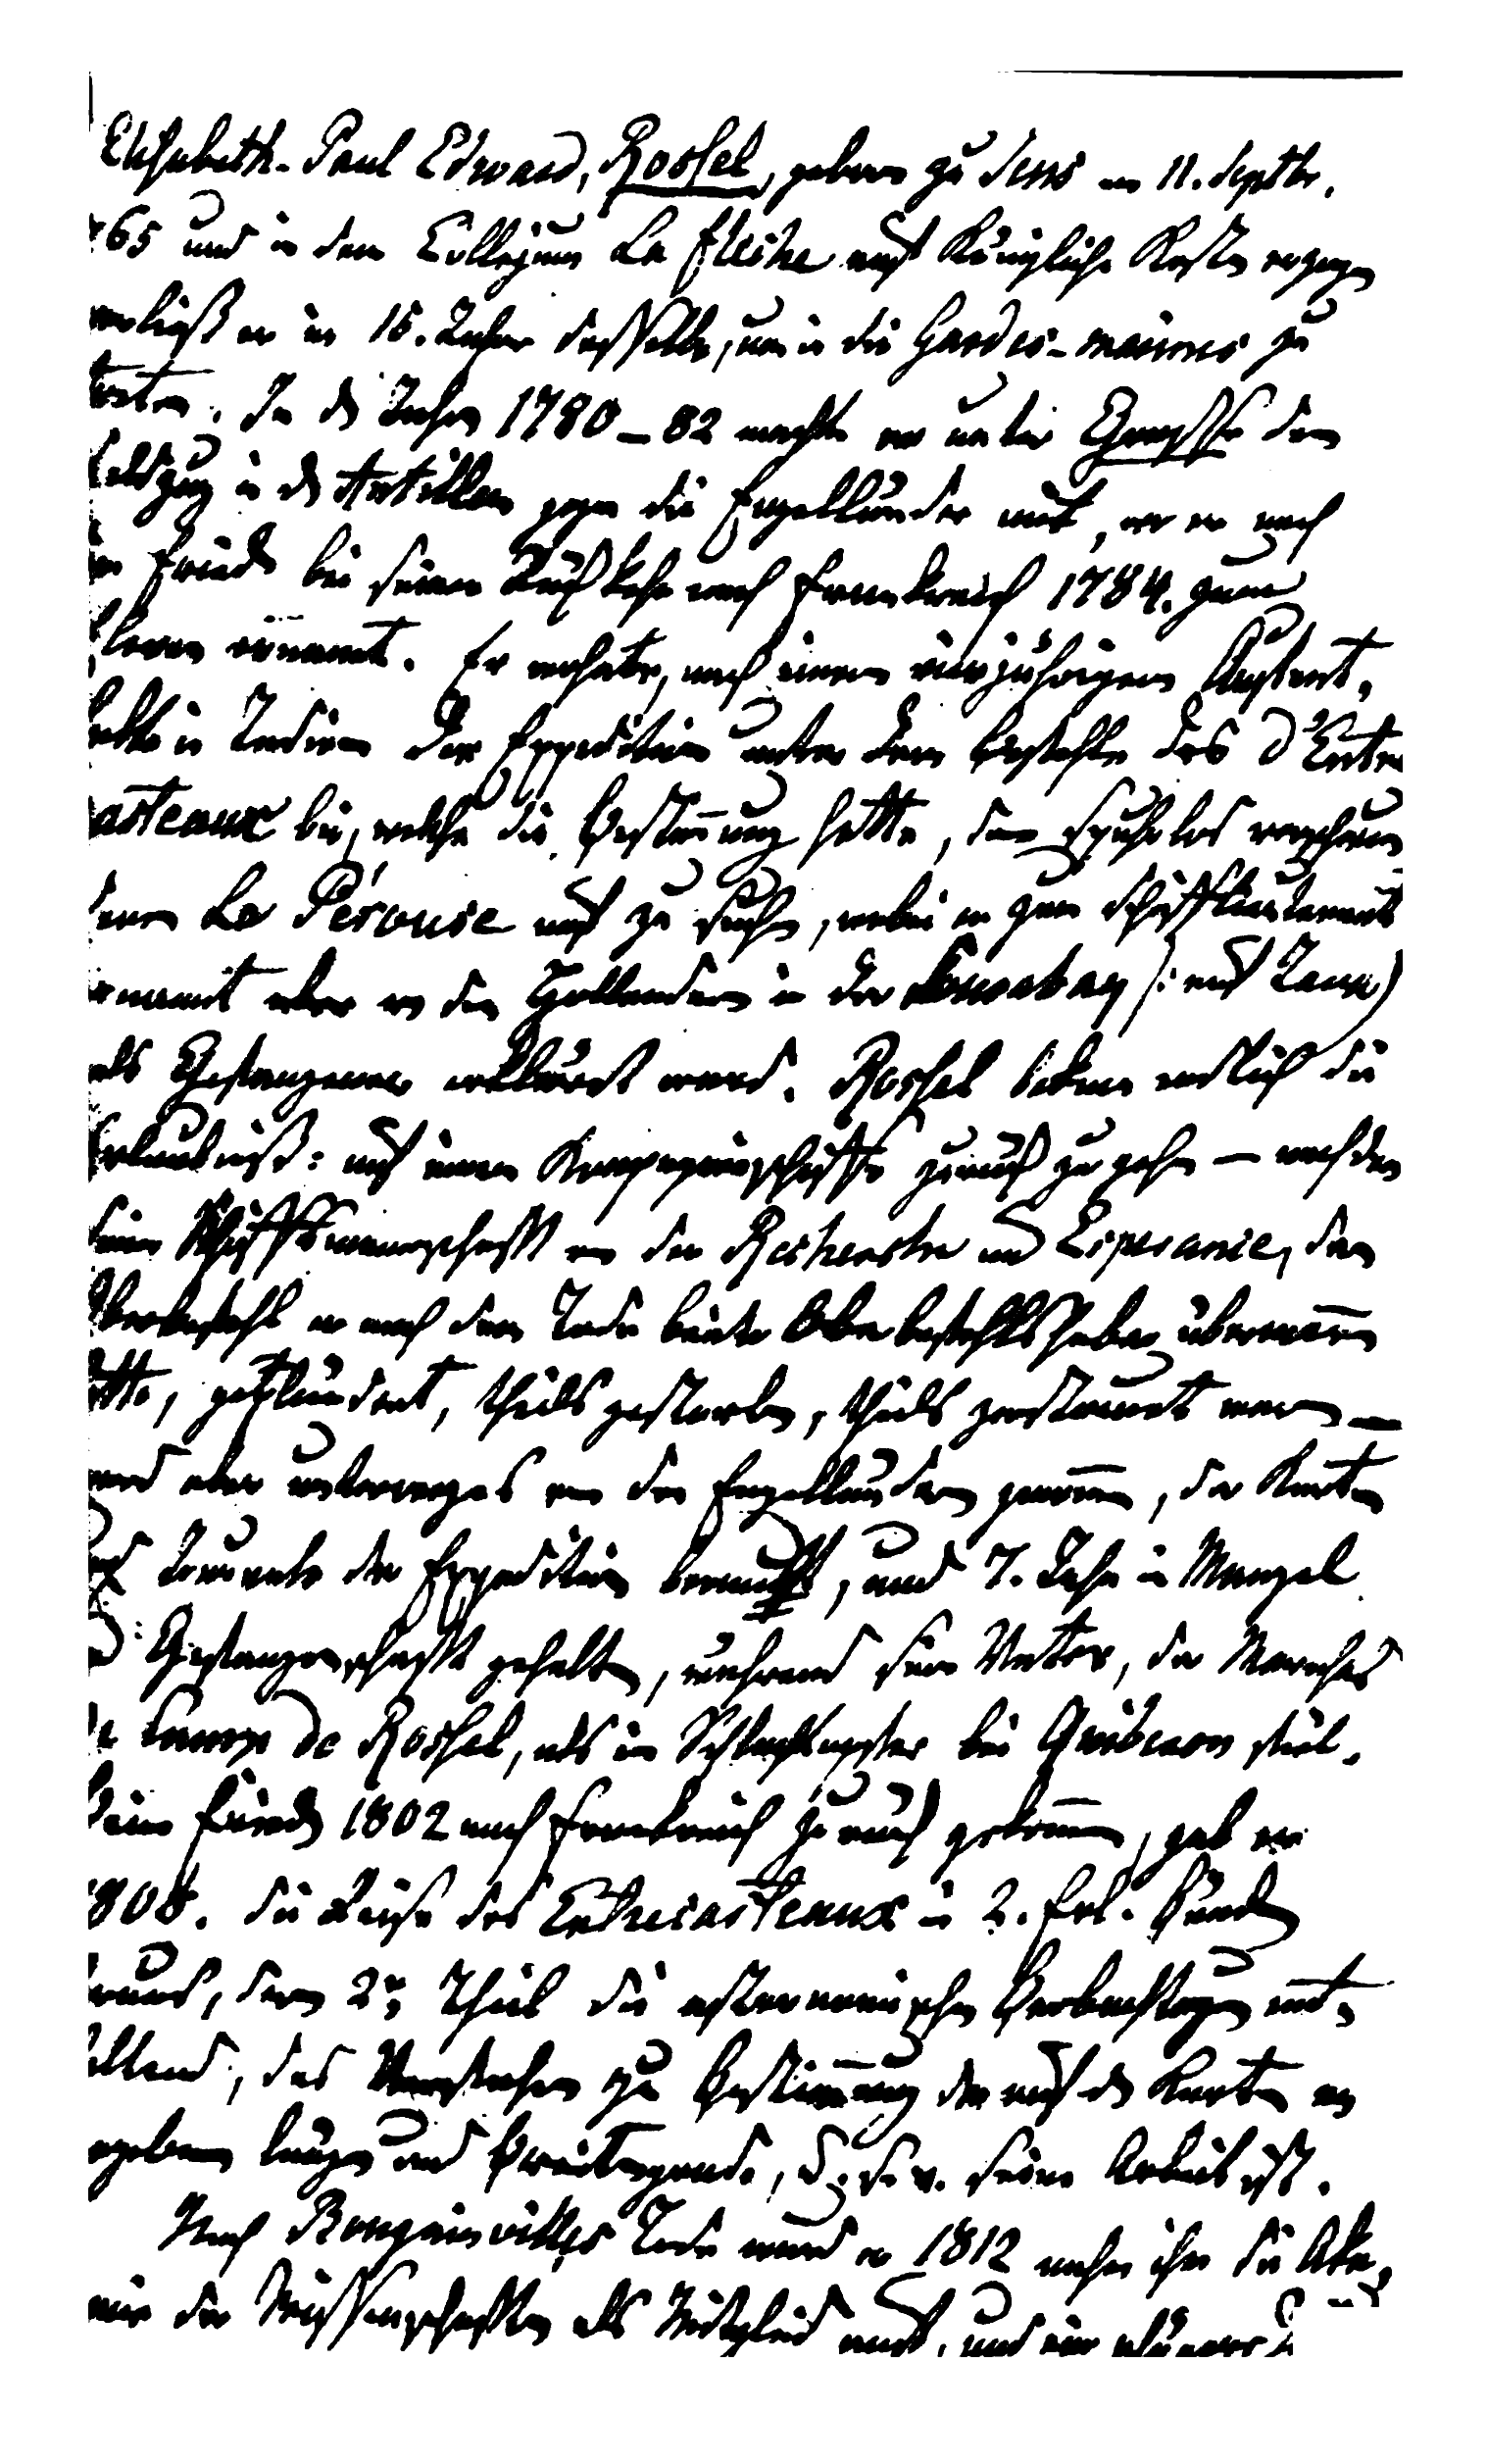 Elisabeth-Paul Edward, Rossel, geboren zu Sens am 11. Septbr.
765 und in dem Collegium La Fleche auf Königliche Kosten erzogen
verließ er im 15. Jahre dasselbe, um in die Gardes-marines zu
treten. In den Jahren 1780-82 machte er unter Grasse den
Feldzug in den Antillen gegen die Engelländer mit, wo er nach
Friede bei seiner Rückkehr nach Frankreich 1784. zum
ernannt. Er wohnte, nach einem vierjährigen Aufent-
halte in Indien der Expedition unter dem Befehle des d'Entre
casteaux bei, welche die Bestimmung hatte, den spuhrlos verschwun
denen La Pérouse auf zu suchen, wobei er zum Schiffslieutenant
ernannt aber von den Hollendern in der Sourabay /: auf Java)
als Gefangener erklärt ward. Rossel bekam endlich die
Erlaubniß: auf einem Kompagnieschiffe zurück zu gehen — nachdem
seine Schiffsmannschaft von der Recherche und Esperance, den
Oberbefehl er nach dem Tode beider Oberbefehlshaber übernom̄en
hatte, geplündert, theils gestorben, theils zerstreut waren —
ward aber unterweges von den Engelländern genom̄en, der Karten
und Journale der Expedition beraubt, und 7. Jahre in Mangel
und Gefangenschaft gehalten, während sein Vater, der Marechal
de Camp de Rossel, als ein Schlachtopfer bei Quiberon fiel.
Beim Frieden 1802 nach Frankreich zurück gekom̄en, gab er
1808. die Reise des Entrecasteaux in 2. Bänden
heraus, deren 2r. Theil die astronomischen Beobachtungen ent-
haltend, das Verfahren zu Bestim̄ung der auf den Karten an
gegebenen Längen und Breitegrade, seine Arbeit ist.
Nach Bougainvilles Tode ward er 1812 nahm ihn die Aka-
mie der Wissenschaften als Mitglied auf, und ein